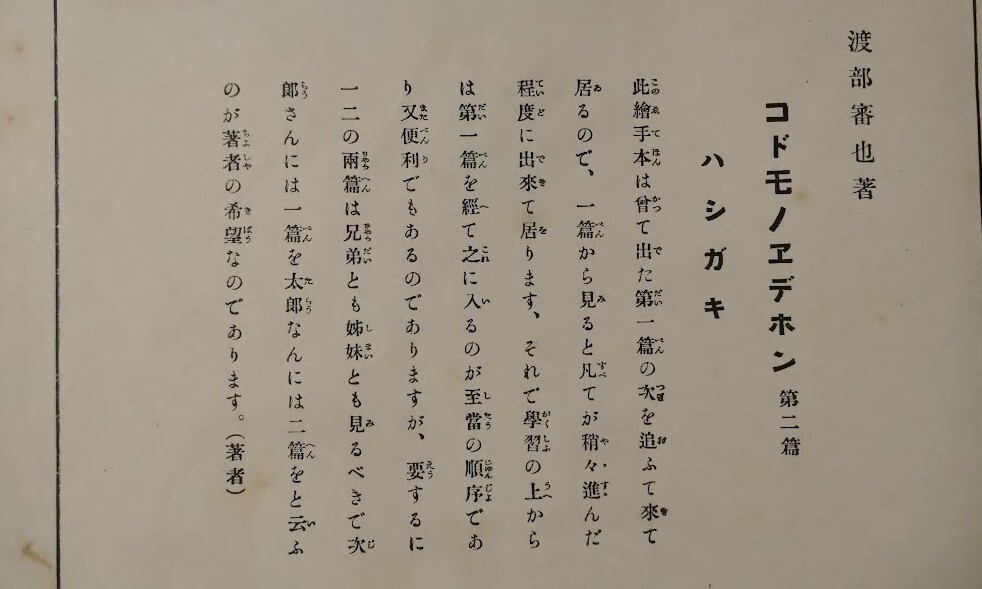 渡部審也著
コドモノヱデホン 第二篇
ハシガキ
此繪手本は曾て出た第一篇の次を追ふて來て
居るので、一篇から見ると凡てが稍々進んだ
程度に出來て居ります、それで學習の上から
は第一篇を經て之に入るのが至當の順序であ
り又便利でもあるのでありますが、要するに
一二の兩篇は兄弟とも姊妹とも見るべきで次
郎さんには一篇を太郎なんには二篇をと云ふ
のが著者の希望なのであります。(著者)